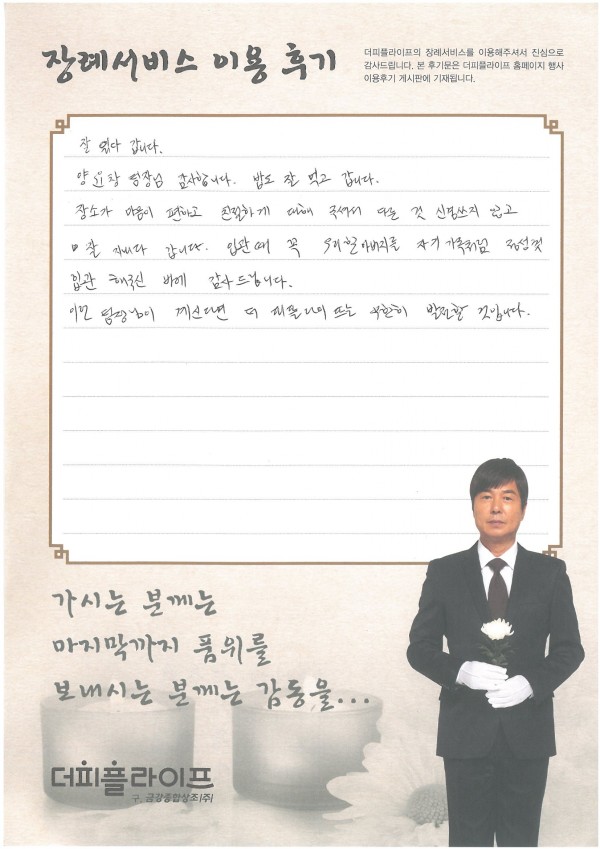 장례서비스 이용 후기
더피플라이프의 장례서비스를 이용해주셔서 진심으로
감사드립니다. 본 후기문은 더피플라이프 홈페이지 행사
이용후기 게시판에 기재됩니다.
잘 있다 갑니다.
양윤창 팀장님 감사합니다. 밥도 잘 먹고 갑니다.
장소가 마음이 편하고 친절하게 대해 주셔서 다른 것 신경쓰지 않고
잘 지내다 갑니다. 입관때 꼭 우리 할아버지를 자기 가족처럼 정성껏
입관 해주신 바에 감사드립니다.
이런 팀장님이 계신다면 더 피플라이프는 무한히 발전할 것입니다.
가시는 분께는
마지막까지 품위를
보내시는 분께는 감동을...
더피플라이프
구. 금강종합상조(주)